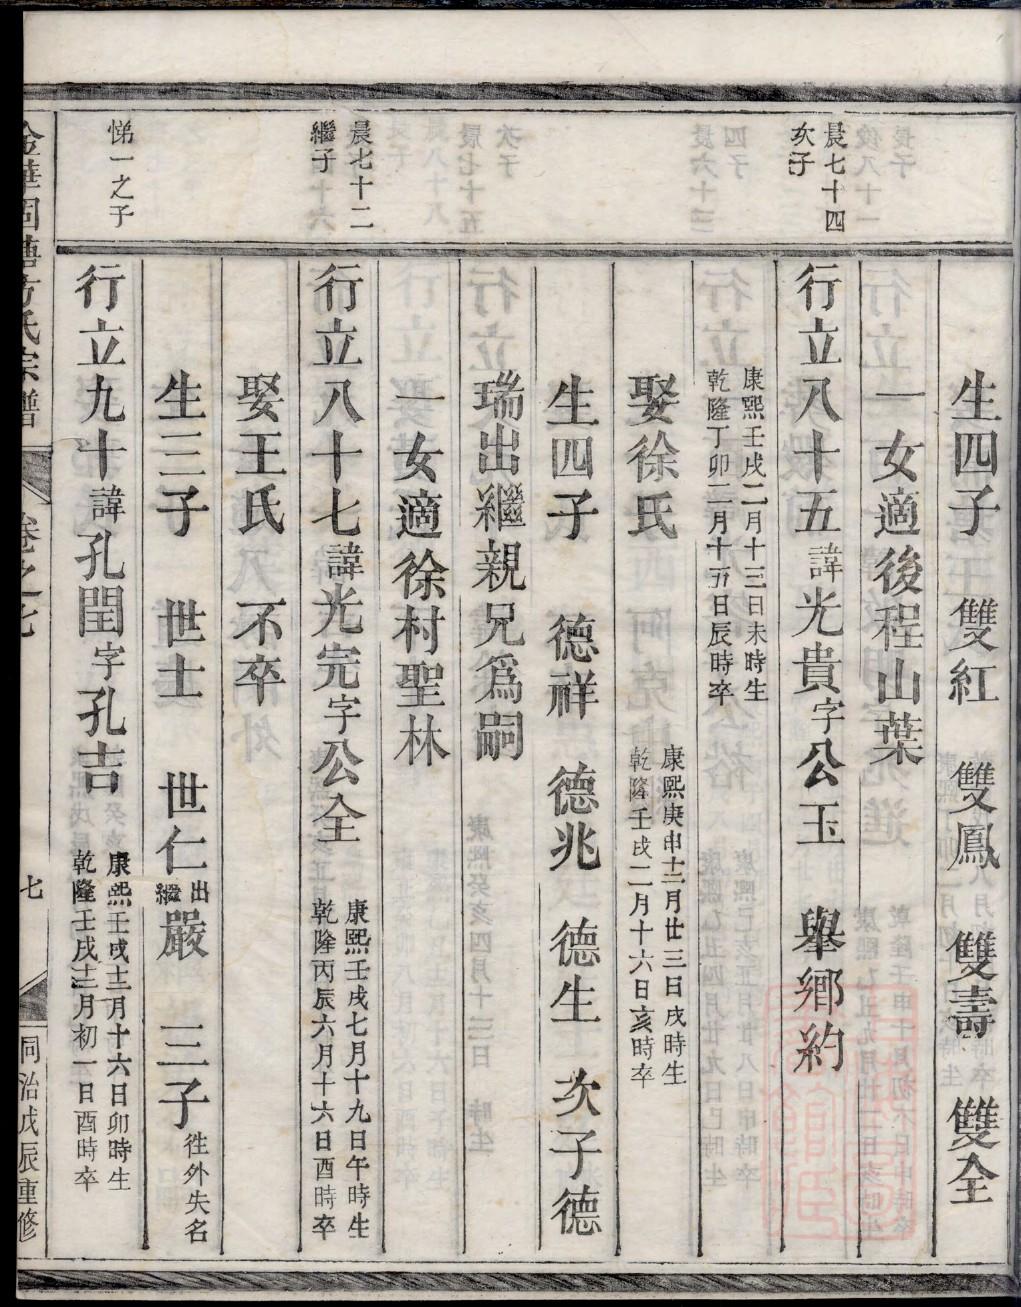 生四子 雙紅 雙鳳 雙壽 雙全
一女適後程山葉
晨七十四
次子
行立八十五諱光貴字公玉 舉鄉約
康熙壬戌二月十三日未時生
乾隆丁卯二月十五日辰時卒
娶徐氏
康熙庚申十二月廿三日戌時生
乾隆壬戌二月十六日亥時卒
生四子 德祥 德兆 德生 次子德
瑞出繼親兄爲嗣
一女適徐村聖林
晨七十二
繼子
行立八十七諱光完字公全
康熙壬戌七月十九日午時生
乾隆丙辰六月十六日酉時卒
娶王氏 不卒
生三子 世士 世仁出繼嚴 三子徃外失名
悌一之子
行立九十諱孔閏字孔吉
康熙壬戌十二月十六日卯時生
乾隆壬戌十二月初一日酉時卒
金華固塘方氏宗譜 卷之七 七 同治戊辰重修